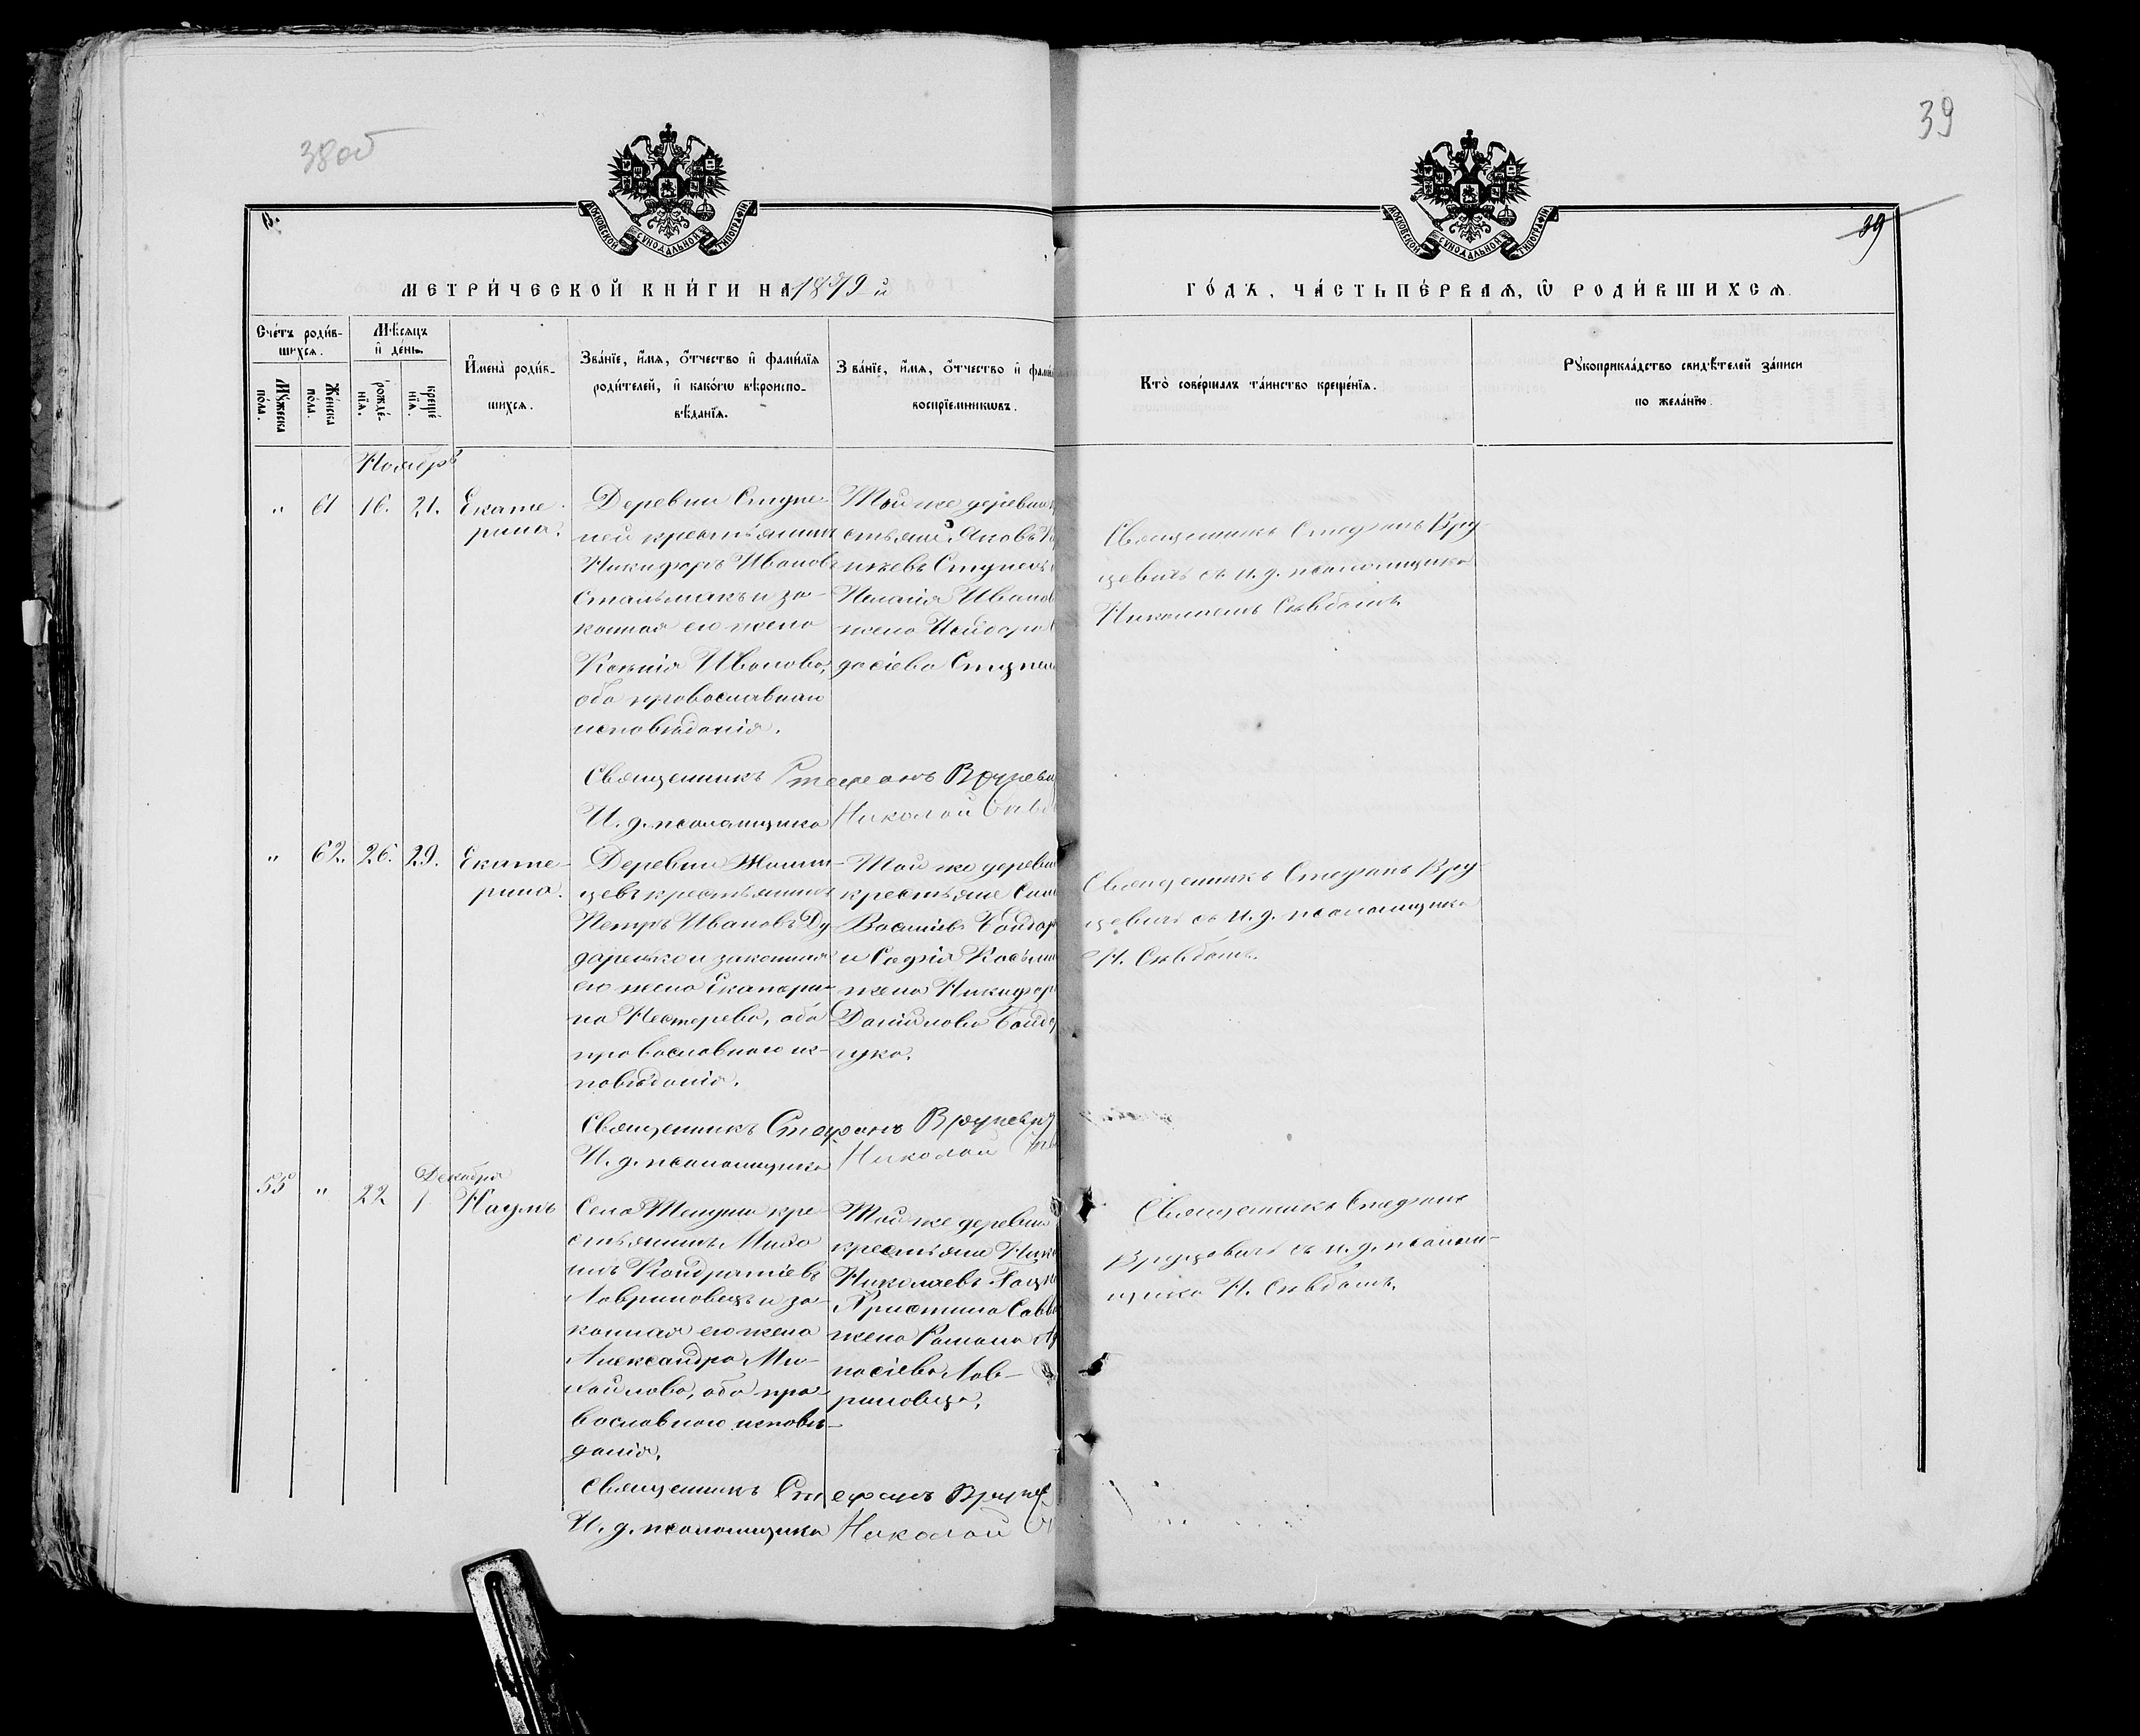 38 об
39
МОСКОВСКОЙ СѴНОДАЛЬНОЙ ТИПОГРАФІИ
МОСКОВСКОЙ СѴНОДАЛЬНОЙ ТИПОГРАФІИ
39
МЕТРИ́ЧЕСКОЙ КНИ́ГИ НА 1879 й
ГО́ДЪ, ЧА́СТЬ ПЕ́РВАЯ, Ѿ РОДИ́ВШИХСЯ.
Сче́тъ роди́в-
шихся.
Му́жеска по́ла.
Же́нска по́ла.
Мѣ́сяцъ
и҆ де́нь.
рожде́-
нїя.
креще́
нїя.
И҆мена̀ роди́в-
шихся.
Зва́нїе, и҆́мя, ѻ҆́тчество и҆ фами́лїя
роди́телей, и҆ како́гѡ вѣроиспо-
вѣ́данїя.
Зва́нїе, и҆́мя, ѻ҆́тчество и҆ фами
воспрїе́мникѡвъ.
Кто̀ соверша́лъ та́инство креще́нїя.
Рꙋкоприкла́дство свидѣ́телей за́писи
по жела́нїю.
Ноябрь
" 61 16. 21. Екате-
рина.
Деревни Ступе-
ней крестьянинъ
Никифоръ Ивановъ
Стальмакъ и за-
конная его жена
Ксенія Иванова,
оба православнаго
исповѣданія.
Той же деревни
стьяни Яковъ
Ступень
Пелагія Иванов
жена Исидора
Священникъ Стефанъ Вру-
цевичъ съ и. д. псаломщика
Николаемъ
Священникъ Стефанъ Вруцеви
И. д. псаломщика Николай
" 62. 26. 29. Екате-
рина.
Деревни
цевъ крестьянинъ
Петръ Ивановъ Ду-
даренко и законная
его жена Екатери-
на Нестерева, оба
православнаго ис-
повѣданія.
Той же деревни
крестьяне
и Софія
жена Никифор
Даніилова
Священникъ Стефанъ Вру-
цевичъ съ и. д. псаломщика
Н.
Священникъ Стефанъ Вруцевич
И. д. псаломщика Николай
Декабря
55 " 22 1 Наумъ
Села кре-
стьянинъ
Кондратіевъ
Лавриновецъ и за-
конная его жена
Александра Ми-
хайлова, оба пра-
вославнаго исповѣ-
данія.
Той же деревни
крестьяне
Николаевъ
Христина Савв
жена Романа
Лав-
риновца.
Священникъ Стефанъ
Вруцевичъ съ и. д. псалом-
щика Н.
Священникъ Стефанъ Вруцев
И. д. псаломщика Николай